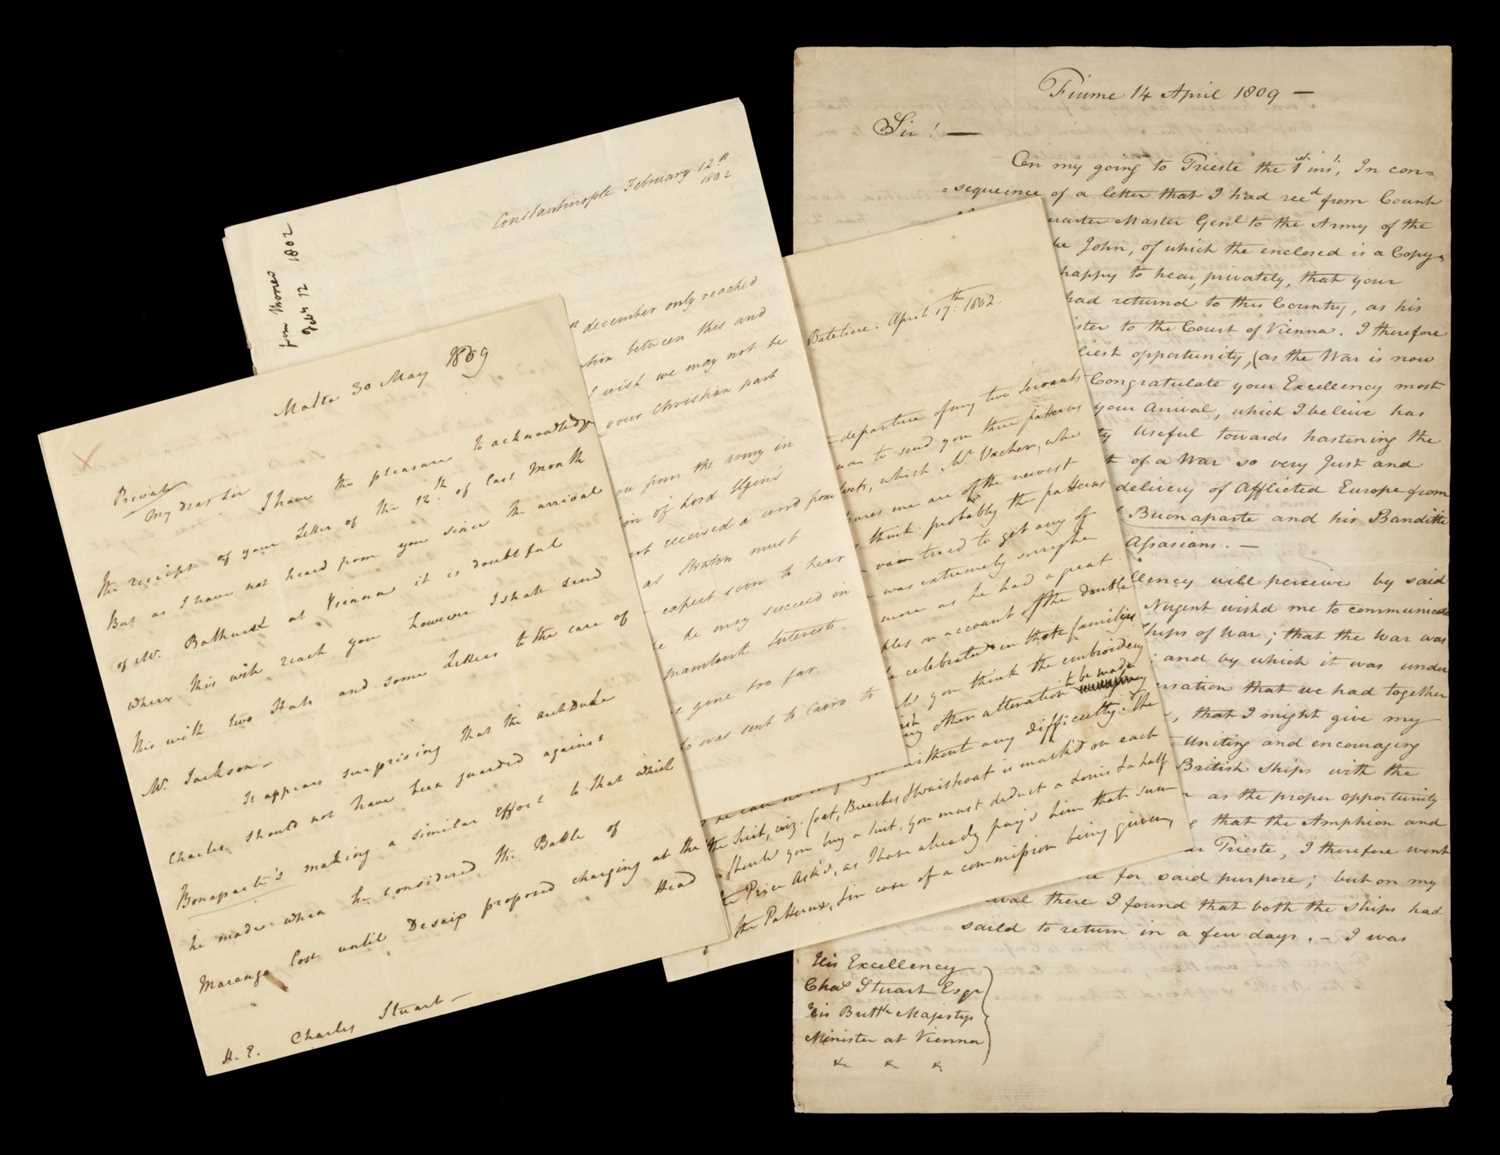 Malta 30 May 1809
Private
My dear Sir I have the pleasure to acknowledge
the receipt of your Letter of the 12th of last Month
But as I have not heard from you since the arrival
of Mr. Bathurst at Vienna it is doubtful
where this will reach you however I shall send
this with two Hats and some Letters to the care of
Mr. Jackson—
It appears surprising that the arch Duke
Charles should not have been guarded against
Bonaparte's making a similar effort to that which
he made when he considered the Battle of
Marango lost until Desaix proposed charging at the
Head
H. E. Charles Stuart—
from Morier
Feb 12 1802
Constantinople February 12th
1802
december only reached
between this and
I wish we may not be
your Christian part
from the army in
of Lord Elgin's
received a card from
as Straton must
expect soon to hear
he may succeed in
Interests
gone too far
was sent to Cairo to
April 17th 1802.
departure of my two Servants
to send you three patterns
which Mr. Vacher, who
me are of the newest
think probably the patterns
tried to get any of
was extremely
more as he had a great
on account of the double
celebrated in those families
you think the embroidery
any other alteration to be made
without any difficulty. The
the Suit, viz. Coat, Breeches & waistcoat is mark'd on each
should you buy a suit, you must deduct a Louis & a half
Price Ask'd, as I have already pay'd him that sum
the Patterns, & in case of a commission being given
Fiume 14 April 1809 —
Sir! —
On my going to Trieste the 1st inst, In con=
=sequence of a letter that I had recd from Count
Quarter Master Genl to the Army of the
John, of which the enclosed is a Copy,
happy to hear, privately, that your
had returnd to this Country, as his
to the Court of Vienna. I therefore
opportunity, (as the War is now
Congratulate your Excellency most
your Arrival, which I beleive has
Useful towards hastening the
of a War so very Just and
delivery of Afflicted Europe from
Buonaparte and his Banditte
Assasians. —
will perceive by said
Nugent wishd me to communicate
Ships of War; that the War was
and by which it was under
that we had together
, that I might give my
Uniting and encouraging
British Ships with the
as the proper opportunity
that the Amphion and
Trieste, I therefore went
for said purpose; but on my
there I found that both the Ships had
saild to return in a few days. — I was
His Excellency
Chas Stuart Esqr
His Britth Majestys
Minister at Vienna
&c &c &c